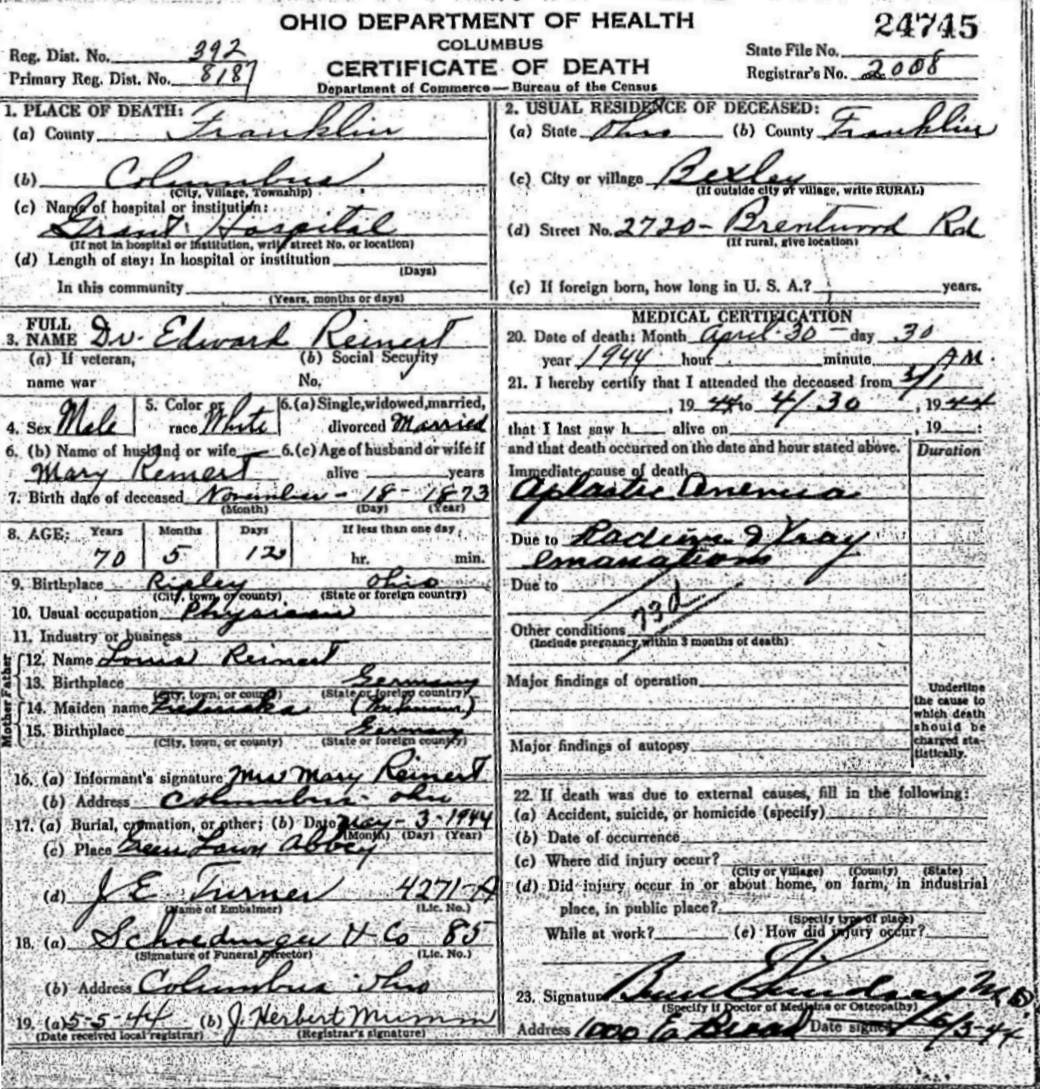 OHIO DEPARTMENT OF HEALTH
COLUMBUS
CERTIFICATE OF DEATH
Department of Commerce — Bureau of the Census
Reg. Dist. No. 392
Primary Reg. Dist. No. 8187
24745
State File No.
Registrar's No. 2008
1. PLACE OF DEATH:
(a) County Franklin
(b) Columbus
(City, Village, Township)
(c) Name of hospital or institution:
Grant Hospital
(If not in hospital or institution, write street No. or location)
(d) Length of stay: In hospital or institution
(Days)
In this community
(Years, months or days)
2. USUAL RESIDENCE OF DECEASED:
(a) State Ohio (b) County Franklin
(c) City or village Bexley
(If outside city or village, write RURAL)
(d) Street No. 2720- Brentwood Rd
(If rural, give location)
(e) If foreign born, how long in U. S. A.? years.
3. FULL NAME Dr. Edward Reinert
(a) If veteran, name war
(b) Social Security No.
4. Sex Male
5. Color or race White
6. (a) Single, widowed, married, divorced Married
6. (b) Name of husband or wife Mary Reinert
6. (c) Age of husband or wife if alive years
7. Birth date of deceased November - 18 - 1873
(Month) (Day) (Year)
8. AGE: Years Months Days If less than one day,
70 5 12 hr. min.
9. Birthplace Ripley Ohio
(City, town, or county) (State or foreign country)
10. Usual occupation Physician
11. Industry or business
Father
12. Name Louis Reinert
13. Birthplace Germany
(City, town, or county) (State or foreign country)
Mother
14. Maiden name (Unknown)
15. Birthplace Germany
(City, town, or county) (State or foreign country)
16. (a) Informant's signature Mrs Mary Reinert
(b) Address Columbus Ohio
17. (a) Burial, cremation, or other; (b) Date May - 3 - 1944
(Month) (Day) (Year)
(c) Place Green Lawn Abbey
(d) J E Turner 4271-A
(Name of Embalmer) (Lic. No.)
18. (a) Schoedinger & Co 85
(Signature of Funeral Director) (Lic. No.)
(b) Address Columbus Ohio
19. (a) 5-5-44 (b) J. Herbert Mumm
(Date received local registrar) (Registrar's signature)
MEDICAL CERTIFICATION
20. Date of death: Month April 30 - day 30
year 1944 hour minute AM.
21. I hereby certify that I attended the deceased from
, 19 44 to 4/30, 19 44
that I last saw h alive on , 19 :
and that death occurred on the date and hour stated above.
Duration
Immediate cause of death
Aplastic Anemia
Due to Radium & Xray
emanations
Due to
73d
Other conditions
(Include pregnancy within 3 months of death)
Major findings of operation
Major findings of autopsy
Underline the cause to which death should be charged statistically.
22. If death was due to external causes, fill in the following:
(a) Accident, suicide, or homicide (specify)
(b) Date of occurrence
(c) Where did injury occur?
(City or Village) (County) (State)
(d) Did injury occur in or about home, on farm, in industrial
place, in public place?
(Specify type of place)
While at work? (e) How did injury occur?
23. Signature M.D.
(Specify if Doctor of Medicine or Osteopathy)
Address 1000 E Broad Date signed 5/3-44